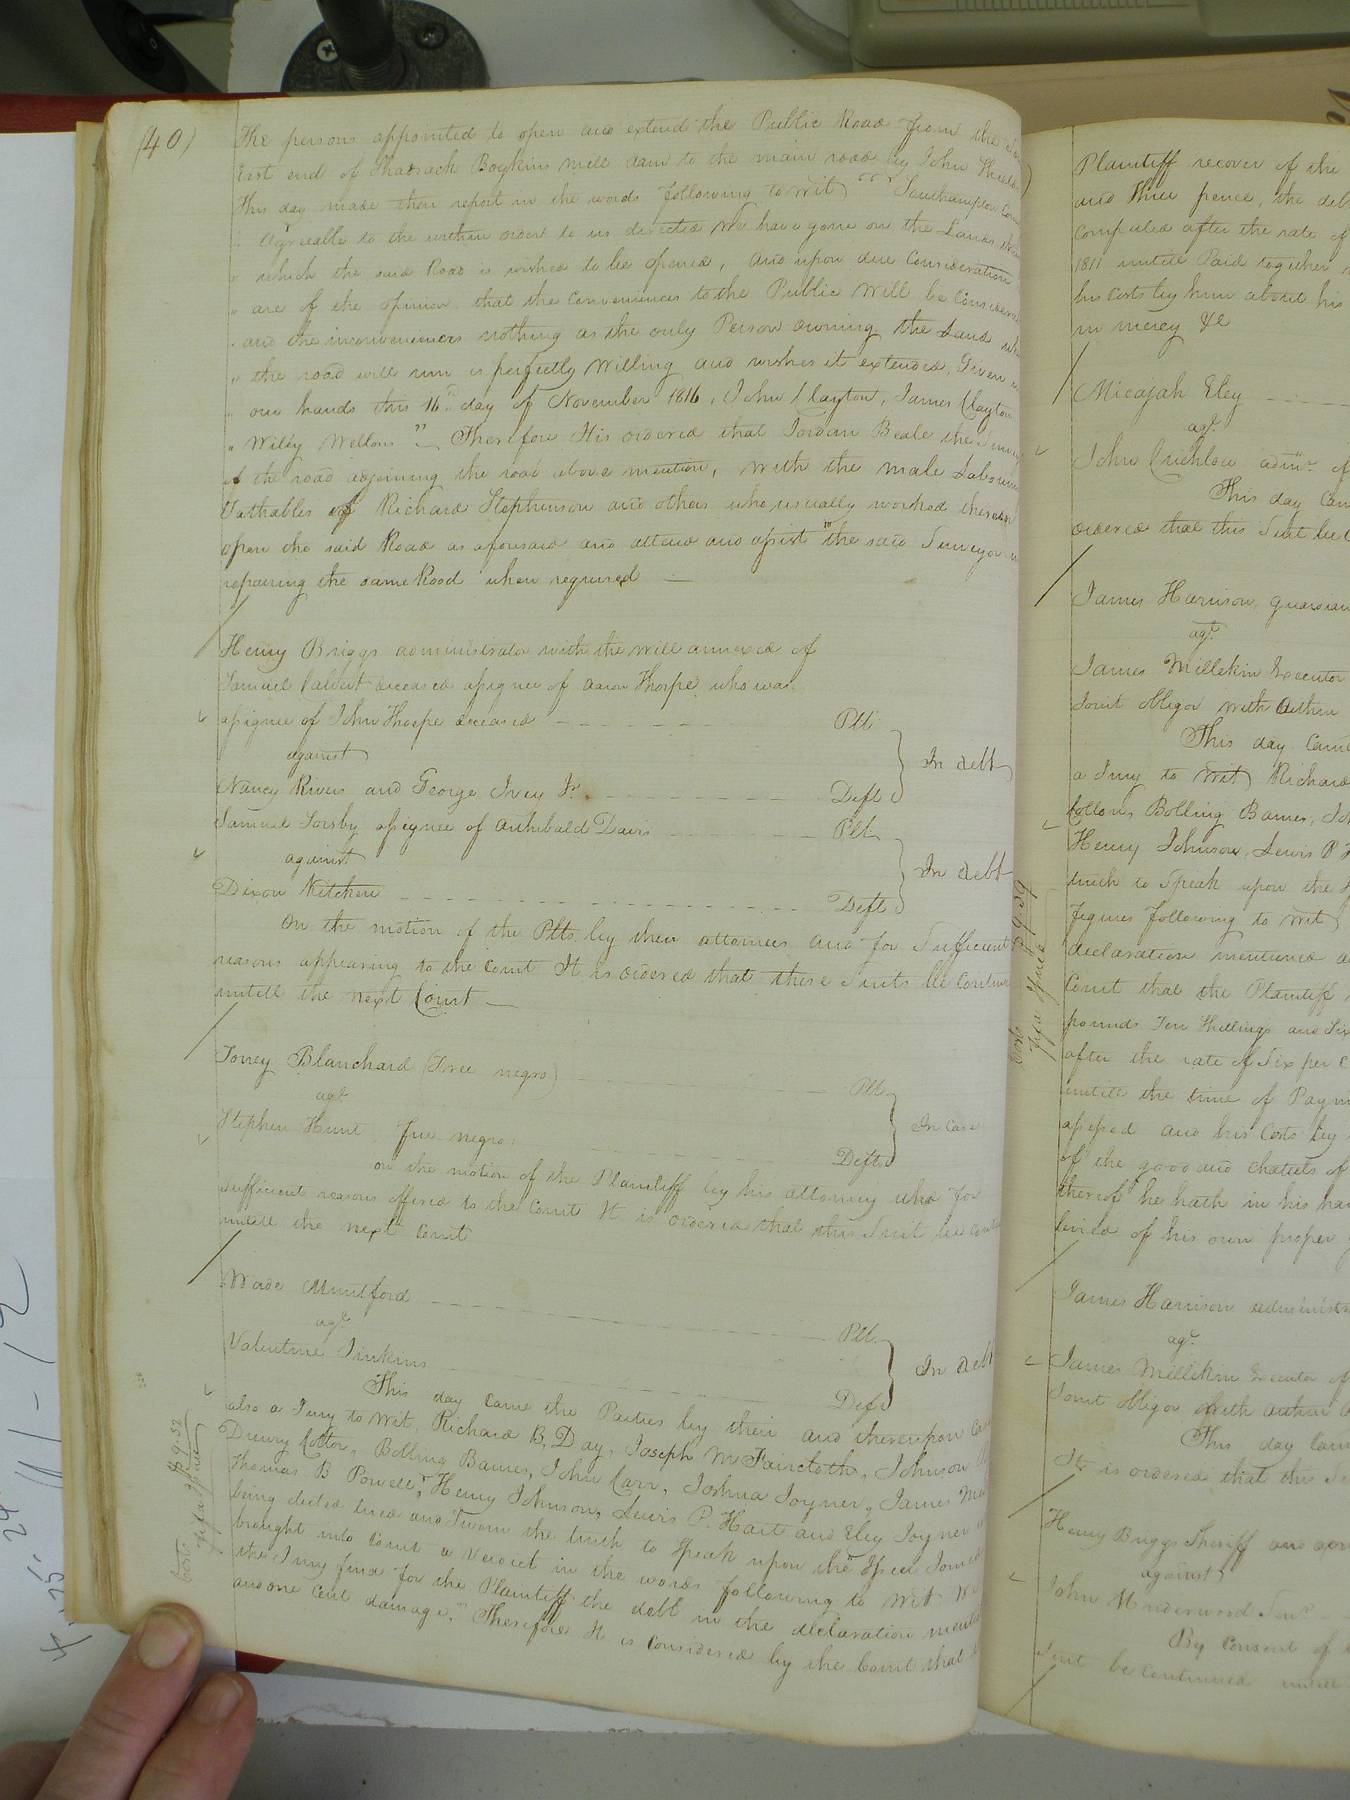 (40)
The persons appointed to open and extend the Public Road from the
East end of Shadrach Boykins mill dam to the main road by John
This day made their report in the words following to wit "Southampton
" Agreeable to the within order to us directed We have gone on the Lands
" which the said Road is wished to be opened, and upon due Consideration
" are of the opinion that the Conveniences to the Public will be
" and the inconveniences nothing as the only Person owning the Land
" the road will run is perfectly Willing and wishes it extended, Given
" our hands this 16th day of November 1816. John Clayton, James Clayton
" Willey Wellons" Therefore Itis ordered that Jordan Beale the
of the road adjoining the road above mention, with the male
tithables of Richard Stephenson and others who usually worked thereon
open the said Road as aforesaid and attend and assist the said Surveyor
repairing the same Road when required
Henry Briggs administrator with the will annexed of
Samuel Calvert deceased assignee of Aaron Thorpe who was
assignee of John Thorpe deceased Plt
against
In debt
Nancy Rivers and George Ivey Jr. Deft
Samuel Sorsby assignee of Archibald Davis Plt
against
In debt
Dixon Kitchen Deft
On the motion of the Plts by their attornies and for Sufficient
reasons appearing to the Court It is ordered that these Suits be
untill the next Court
Toney Blanchard (Free negro) Plt
agt
In Case
Stephen Hunt free negro Deft
on the motion of the Plaintiff by his attorney who for
sufficient reasons offered to the Court It is ordered that this Suit be
untill the next Court
Wade Muntford Plt
agt
In debt
Valentine Jinkins Deft
This day came the Parties by their and thereupon
also a Jury to Wit, Richard B. Day, Joseph McFaircloth, Johnson
Drewry Cotton, Bolling Barnes, John Carr, Joshua Joyner, James
Thomas B Powell, Henry Johnson, Lewis P. Hart and Eley Joyner
being elected tried and Sworn the truth to Speak upon the Issue Joined
brought into Court a Verdict in the words following to Wit "We
the Jury find for the Plaintiff the debt in the declaration
and one Cent damage." Therefore It is Considered by the Court that
Costs
Fifa Issued
Plaintiff recover of the
and three pence, the debt
Computed after the rate of
1811 untill Paid together
his Costs by him about his
in mercy &c
Micajah Eley
agt
John Crichlow admr. of
This day
ordered that this Suit be
James Harrison guardian
agt
James Millikin Executor
Joint obligor with
This day Came
a Jury to Wit Richard
Cotton, Bolling Barnes,
Henry Johnson, Lewis P
truth to Speak upon the
figures following to wit
declaration mentioned
Court that the Plaintiff
pounds Ten Shillings and Six
after the rate of Six per
untill the time of
assessed and his Costs by
of the good and chatels of
thereof he hath in his
levied of his own proper
Costs
Fifa Issued
James Harrison
agt
James Millikin Executor of
Joint obligor with
This day
It is ordered that this
Henry Briggs Sheriff and
against
John Underwood Senr
By Consent of
Suit be Continued untill